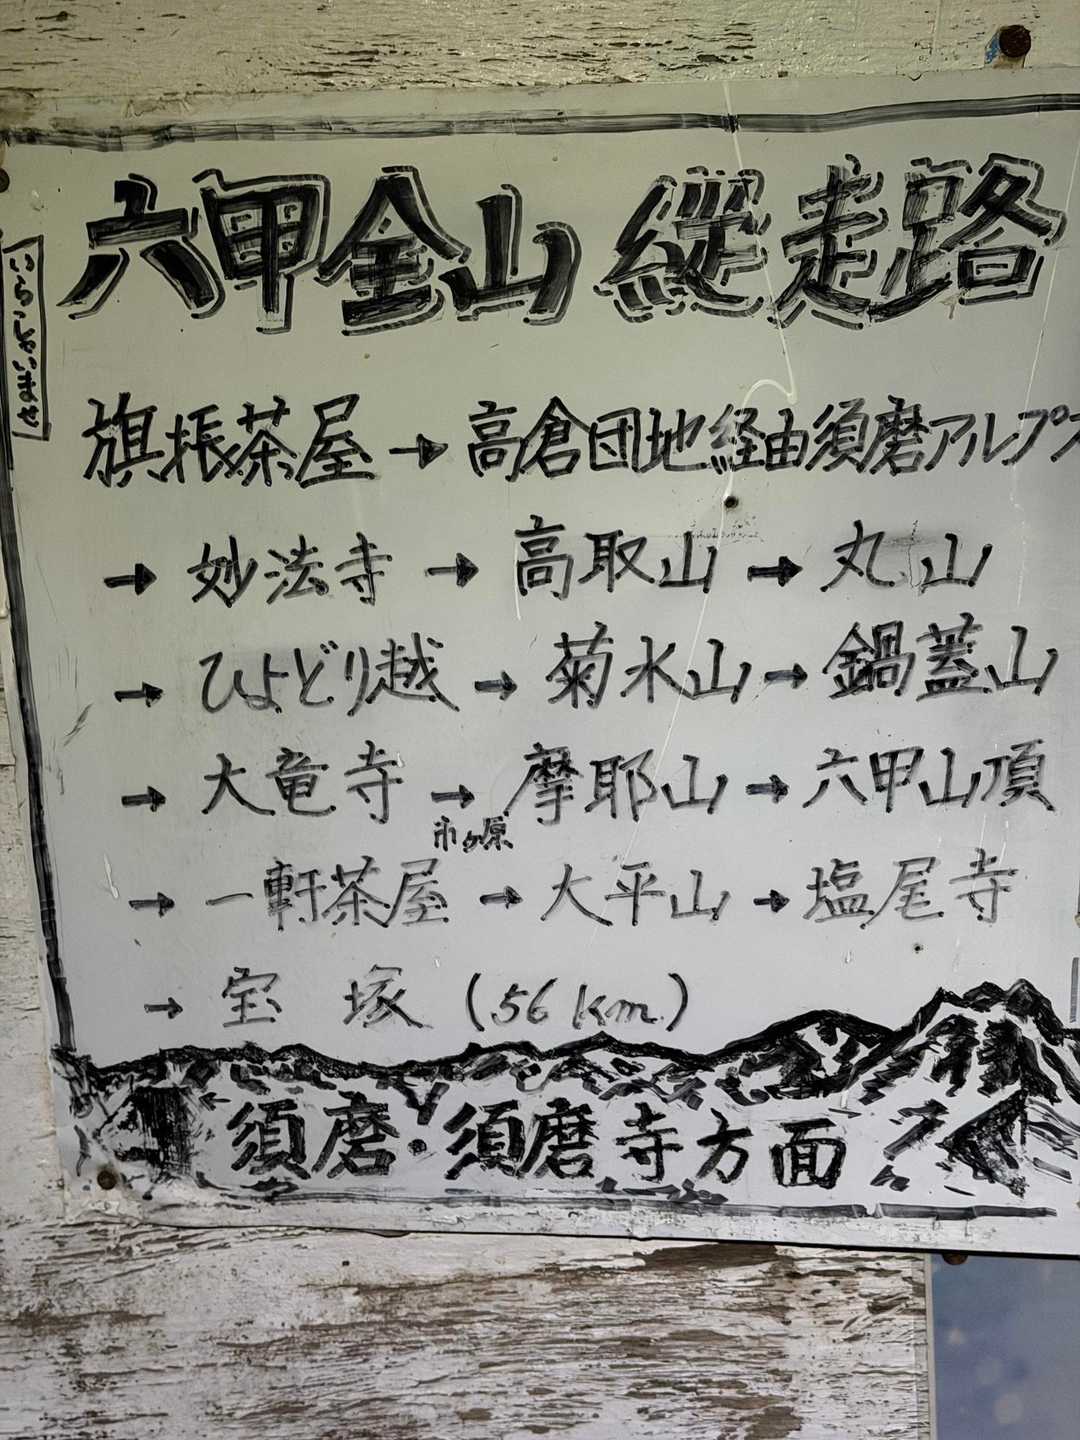 六甲全山縦走路
旗振茶屋→高倉団地経由須磨アルプス
→妙法寺→高取山→丸山
→ひよどり越→菊水山→鍋蓋山
→大竜寺→摩耶山→六甲山頂
市ヶ原
→一軒茶屋→大平山→塩尾寺
→宝塚(56km)
須磨・須磨寺方面